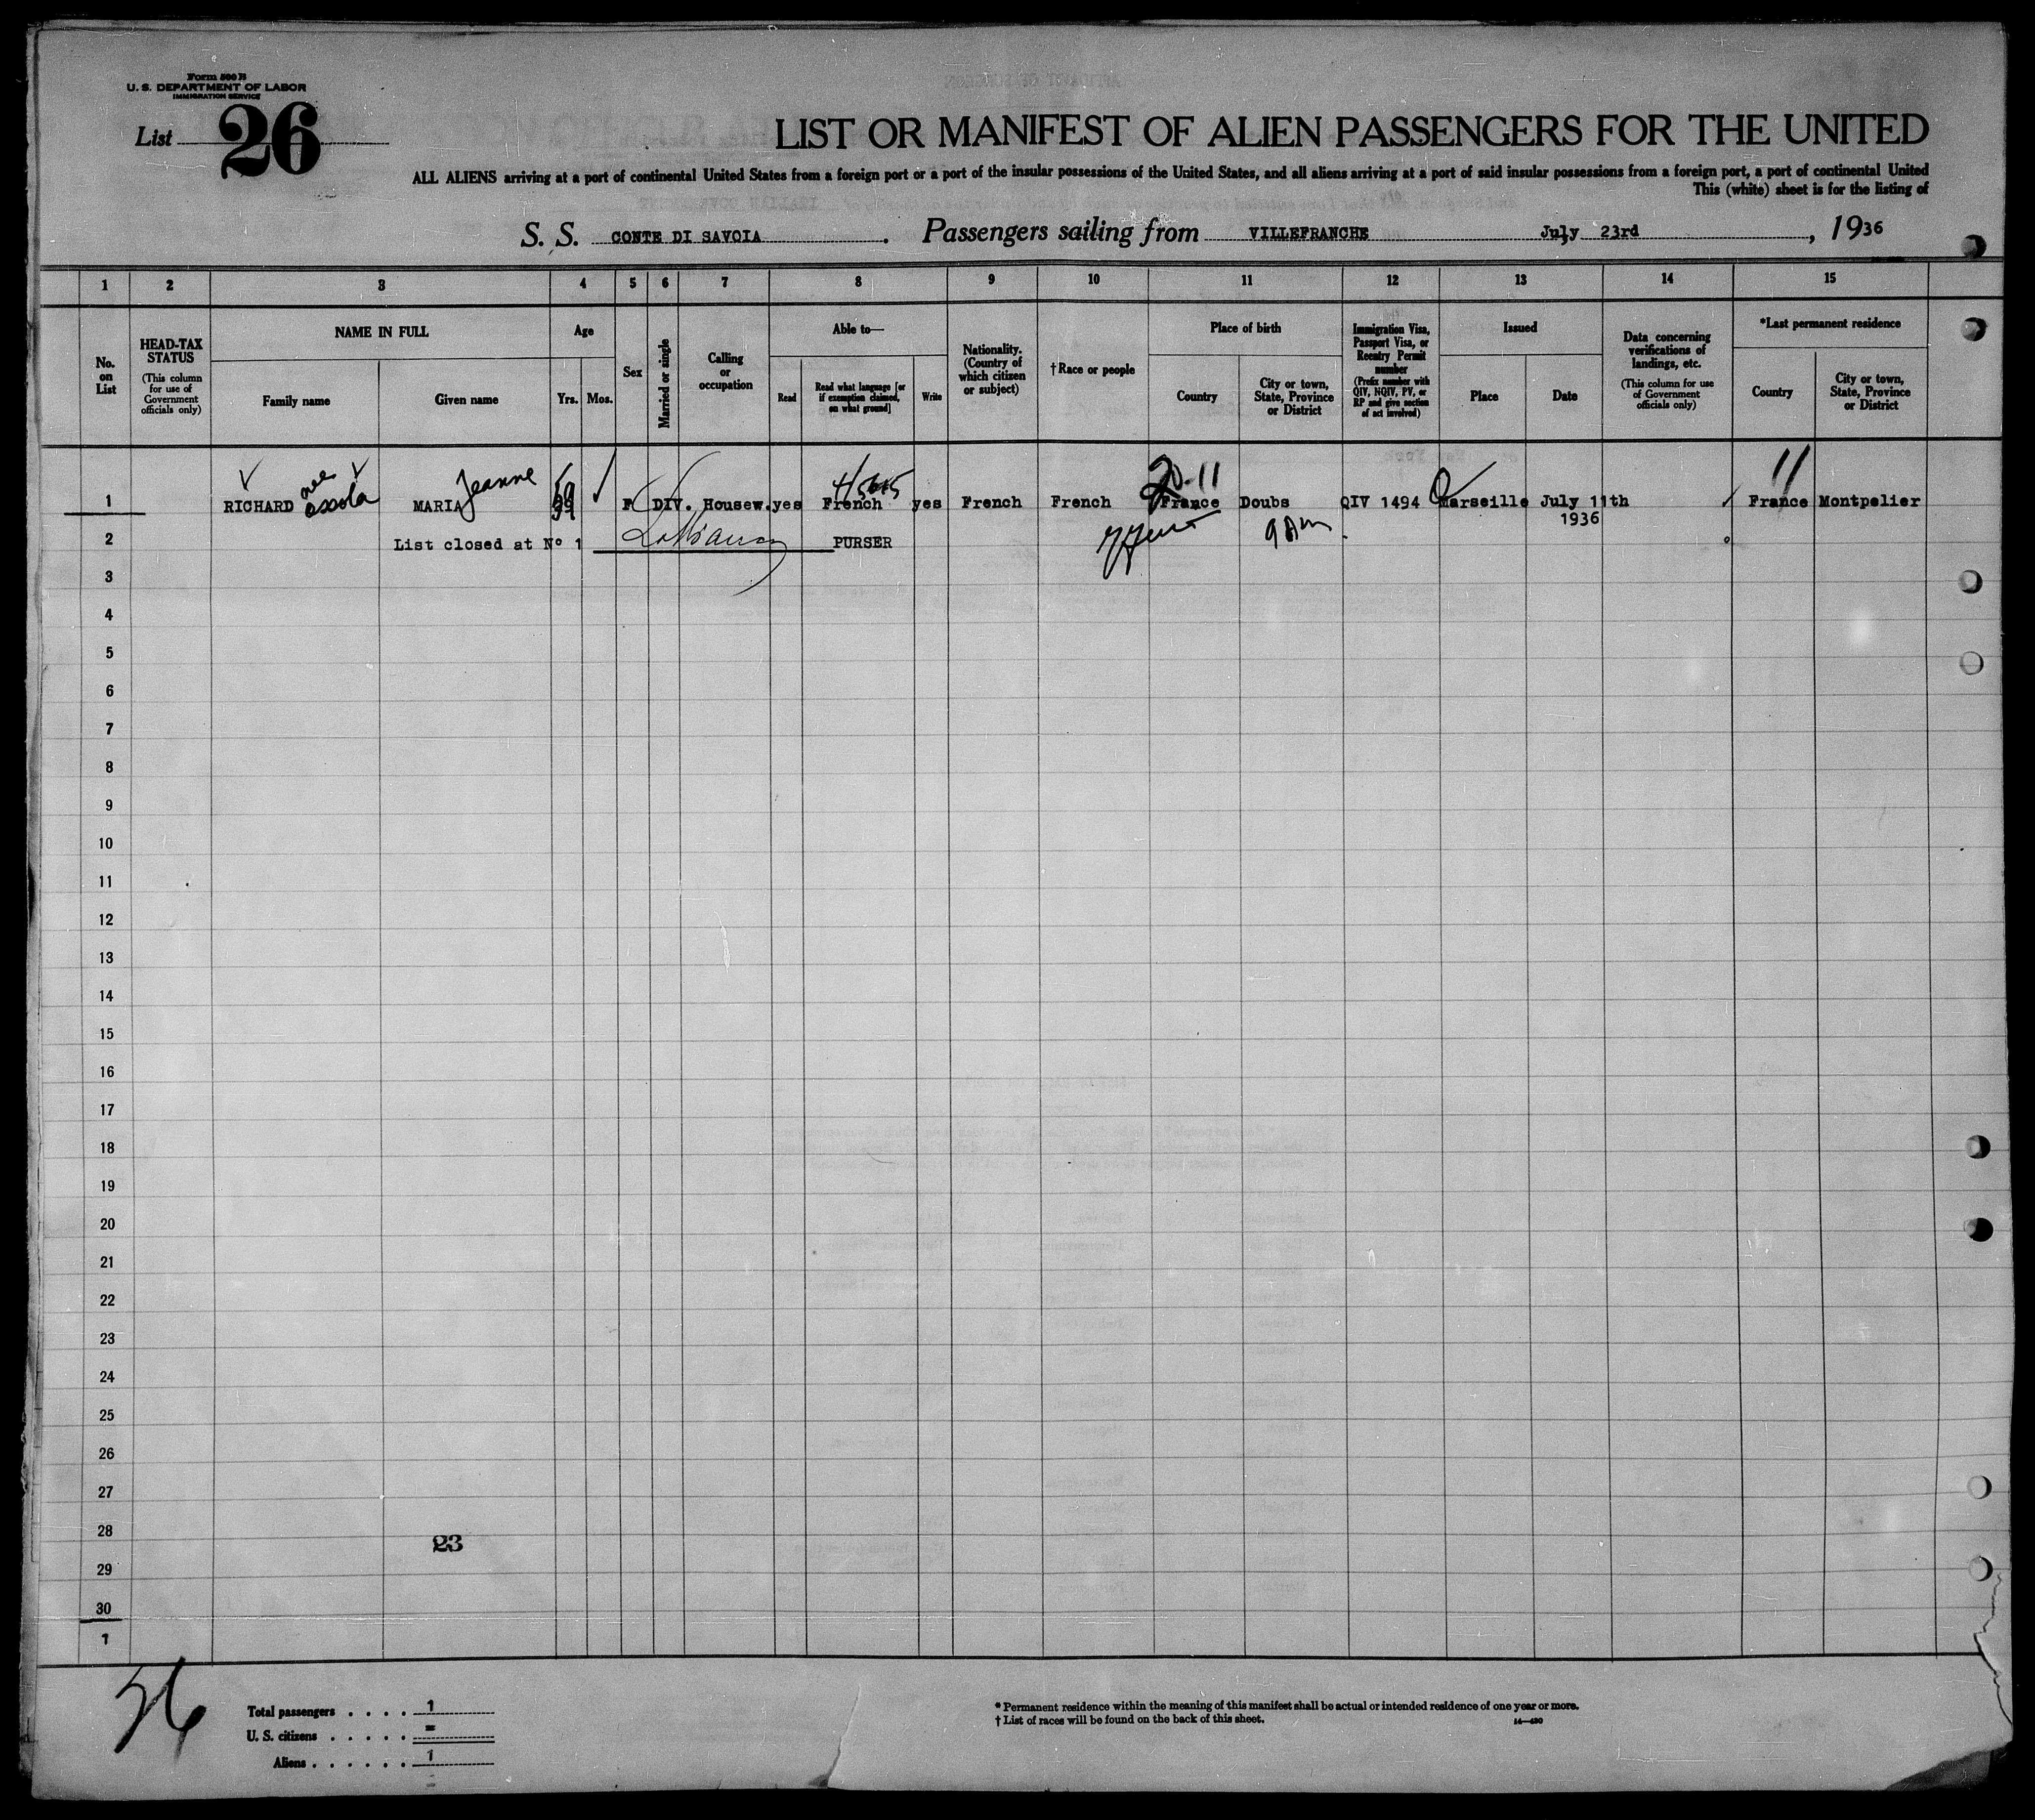 Form 500 B
U. S. DEPARTMENT OF LABOR
IMMIGRATION SERVICE
List 26
LIST OR MANIFEST OF ALIEN PASSENGERS FOR THE UNITED
ALL ALIENS arriving at a port of continental United States from a foreign port or a port of the insular possessions of the United States, and all aliens arriving at a port of said insular possessions from a foreign port, a port of continental United
This (white) sheet is for the listing of
S. S. CONTE DI SAVOIA. Passengers sailing from VILLEFRANCHE July 23rd, 1936
1 2 3 4 5 6 7 8 9 10 11 12 13 14 15
No. on List
HEAD-TAX STATUS
(This column for use of Government officials only)
NAME IN FULL
Family name
Given name
Age
Yrs. Mos.
Sex
Married or single
Calling or occupation
Able to—
Read
Read what language [or if exemption claimed, on what ground]
Write
Nationality. (Country of which citizen or subject)
†Race or people
Place of birth
Country
City or town, State, Province or District
Immigration Visa, Passport Visa, or Reentry Permit number
(Prefix number with QIV, NQIV, PV, or RP and give section of act involved)
Issued
Place
Date
Data concerning verifications of landings, etc.
(This column for use of Government officials only)
*Last permanent residence
Country
City or town, State, Province or District
nee Jeanne 20-11 11
1 RICHARD MARIA F DIV. Housew. yes French yes French French France Doubs QIV 1494 Marseille July 11th France Montpelier
1936
2 List closed at Nº 1 PURSER 9 AM
3
4
5
6
7
8
9
10
11
12
13
14
15
16
17
18
19
20
21
22
23
24
25
26
27
28 23
29
30
1
26
Total passengers . . . . 1
U. S. citizens . . . . . =
Aliens . . . . . . 1
* Permanent residence within the meaning of this manifest shall be actual or intended residence of one year or more.
† List of races will be found on the back of this sheet. 14—430